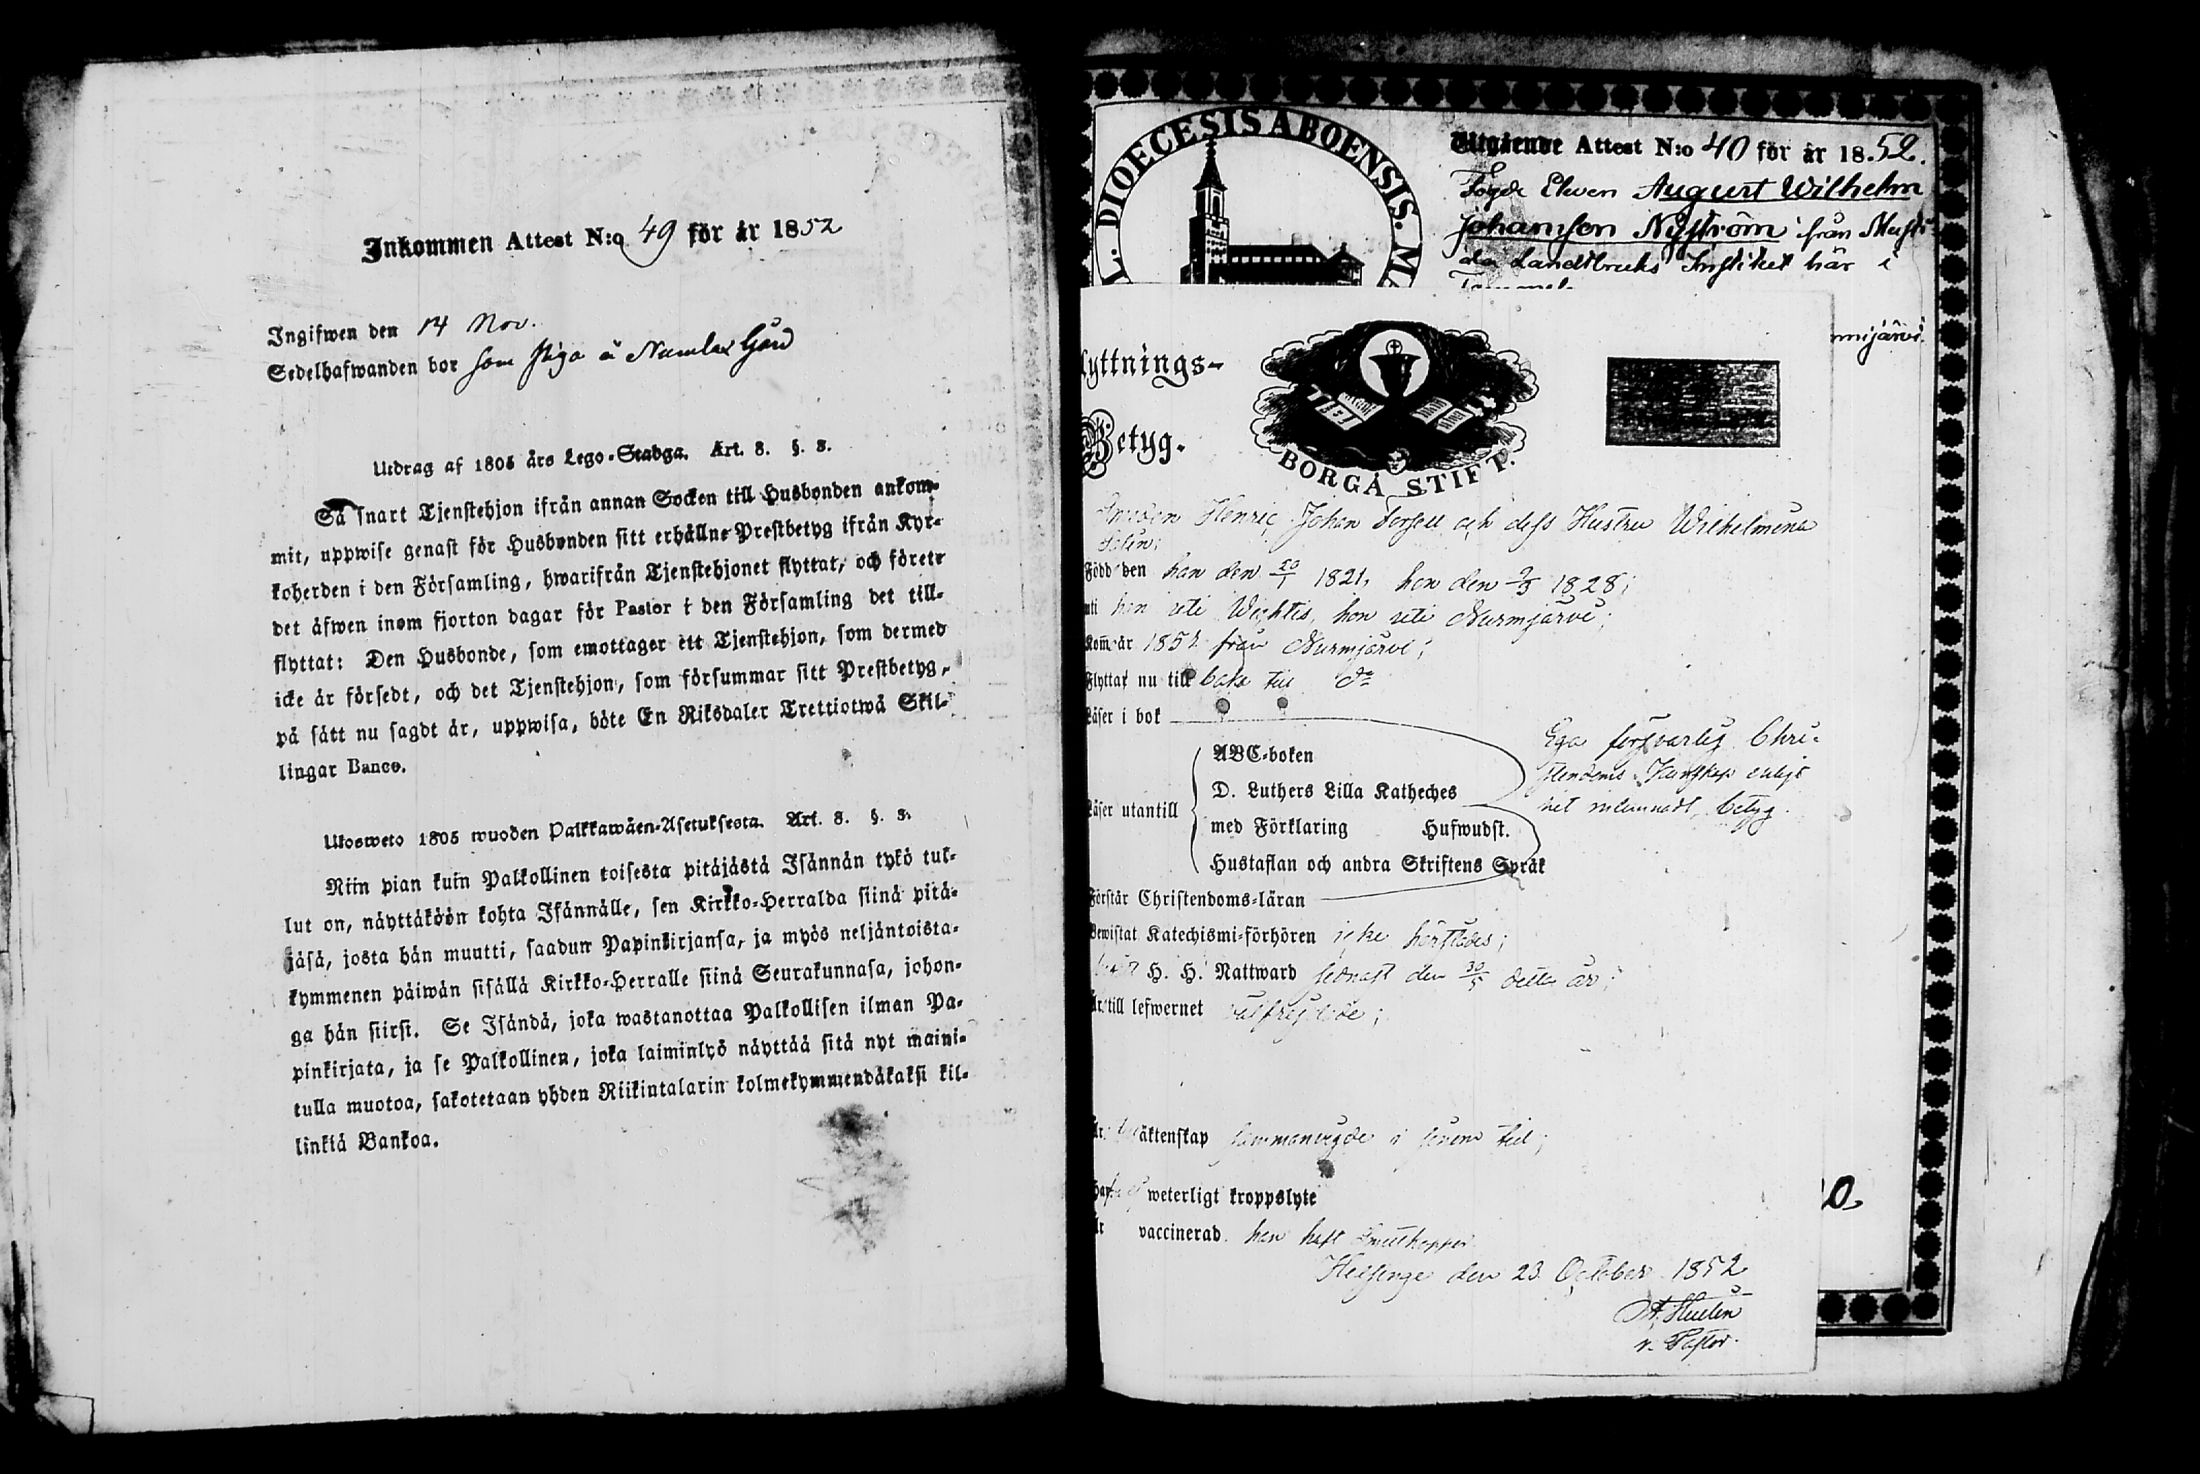 Inkommen Attest N:o 49 för år 1852
Ingifwen den 14 Nov.
Sedelhafwanden bor som piga å Numlax Gård
Utdrag af 1805 års Lego-Stadga. Art. 8. §. 3.
Så snart Tjenstehjon ifrån annan Socken till Husbonden ankom-
mit, uppwise genast för Husbonden sitt erhållne Prestbetyg ifrån Kyr-
koherden i den Församling, hwarifrån Tjenstehjonet flyttat, och förete
det äfwen inom fjorton dagar för Pastor i den Församling det till-
flyttat: Den Husbonde, som emottager ett Tjenstehjon, som dermed
icke är försedt, och det Tjenstehjon, som försummar sitt Prestbetyg,
på sätt nu sagdt är, uppwisa, böte En Riksdaler Trettiotwå Skil-
lingar Banco.
Ulosweto 1805 wuoden Palkkawäen-Asetuksesta. Art. 8. §. 3.
Niin pian kuin Palkollinen toisesta pitäjästä Isännän tykö tul-
lut on, näyttäköön kohta Isännälle, sen Kirkko-Herralda siinä pitä-
jäsä, josta hän muutti, saadun Papinkirjansa, ja myös neljäntoista-
kymmenen päiwän sisällä Kirkko-Herralle siinä Seurakunnasa, johon-
ga hän siirsi. Se Isändä, joka wastanottaa Palkollisen ilman Pa-
pinkirjata, ja se Palkollinen, joka laiminlyö näyttää sitä nyt maini-
tulla muotoa, sakotetaan yhden Riikintalarin kolmekymmendäkaksi kil-
linkiä Bankoa.
L. DIOECESIS ABOENSIS. MA
Utgående Attest N:o 40 för år 1852.
Fogde Eleven August Wilhelm
Johansson Nyström ifrån Musti-
ala Landtbruks Institut här i
rmijärvi.
lyttnings-
Betyg.
BORGÅ STIFT.
Henric Johan Forsell och dess Hustru Wilhelmina
Född den han den 20/1 1821, hon den 2/3 1828;
uti han uti Wichtis, hon uti Nurmijärvi;
Kom år 1852 från Nurmijärvi;
Flyttar nu till baka till do
Läser i bok
ABC-boken
D. Luthers Lilla Katheches
Läser utantill
med Förklaring Hufwudst.
Hustaflan och andra Skriftens Språk
Ega försvarlig Chri-
stendoms Kunskap enligt
hit inlemnadt betyg.
Förstår Christendoms-läran
Bewistat Katechismi-förhören icke härstädes;
H. H. Nattward sednast den 30/5 detta år;
Är till lefwernet välfrejdade;
äktenskap sammanvigde i senare tid;
weterligt kroppslyte
vaccinerad. han haft Smittkoppor
10
Helsinge den 23 October 1852
v. Pastor.